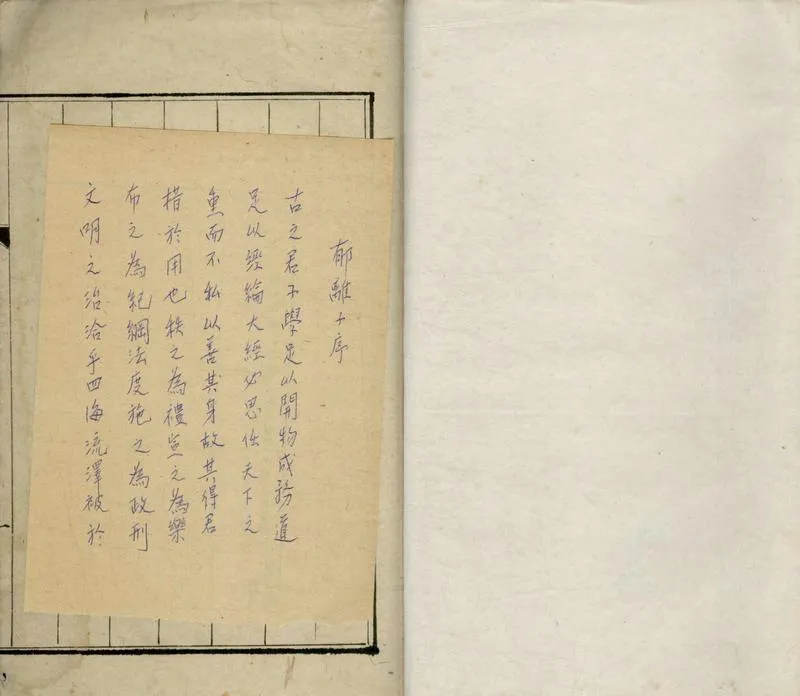 郁離子序
古之君子學足以開物成務道
足以經綸大經必思任天下之
重而不私以善其身故其得君
措於用也秩之為禮宣之為樂
布之為紀綱法度施之為政刑
文明之治洽乎四海流澤被於